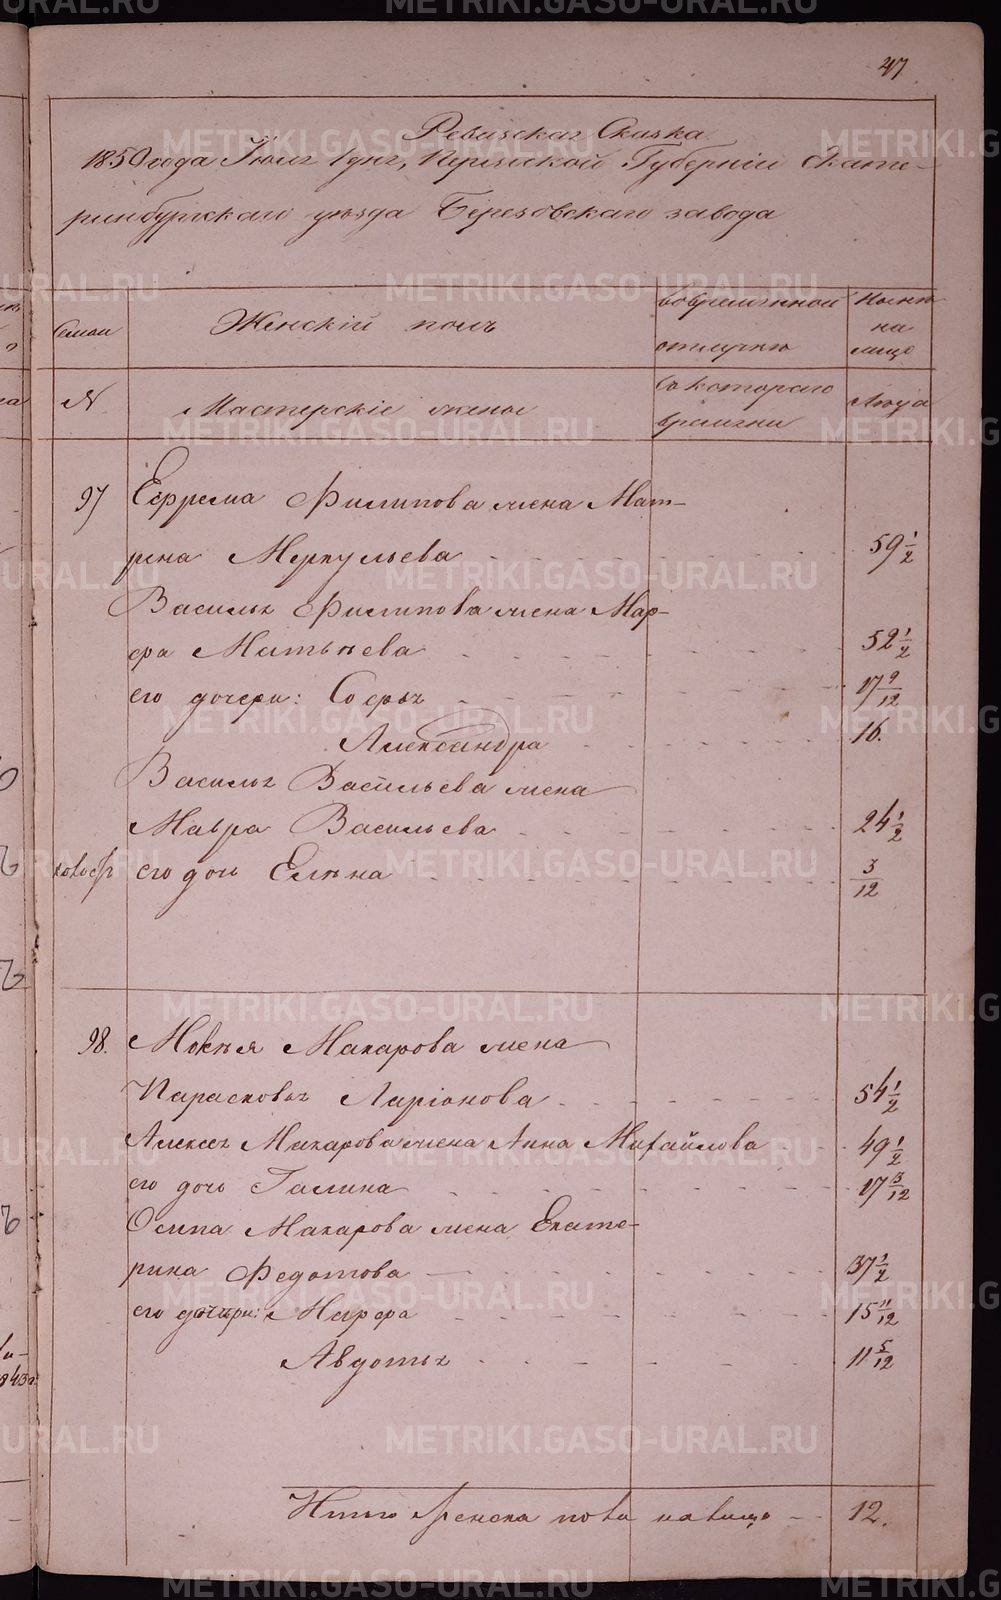 47
Ревизская Сказка
1850 года Іюля 1 дня, Пермской Губерніи Екате-
ринбургскаго уѣзда Березовскаго завода
Семьи
Женскій полъ
во временной
отлучкѣ
Нынѣ
на
лицо
N
Мастерскіе жены
съ котораго
времени
Лѣта
97 Ефрема Филипова жена Мат-
рена Меркульева 59 1/2
Василья Филипова жена Мар-
фа Матвѣева 52 1/2
его дочери: Софья 17 9/12
Александра 16.
Василья Васильева жена
Мавра Васильева 24 1/2
его дочь Елѣна 3/12
98. Мокѣя Макарова жена
Парасковья Ларіонова 54 1/2
Алексея Макарова жена Анна Михайлова 49 1/2
его дочь Галина 17 3/12
Осипа Макарова жена Екате-
рина Федотова 37 1/2
его дочери: Марфа 15 11/12
Авдотья 11 5/12
Итого женска пола на лицо 12.
METRIKI.GASO-URAL.RU